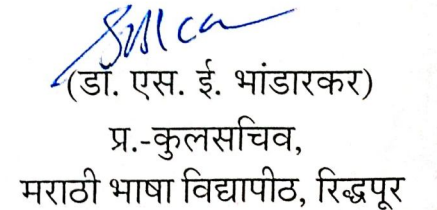 (डॉ. एस. ई. भांडारकर)
प्र.-कुलसचिव,
मराठी भाषा विद्यापीठ, रिद्धपूर